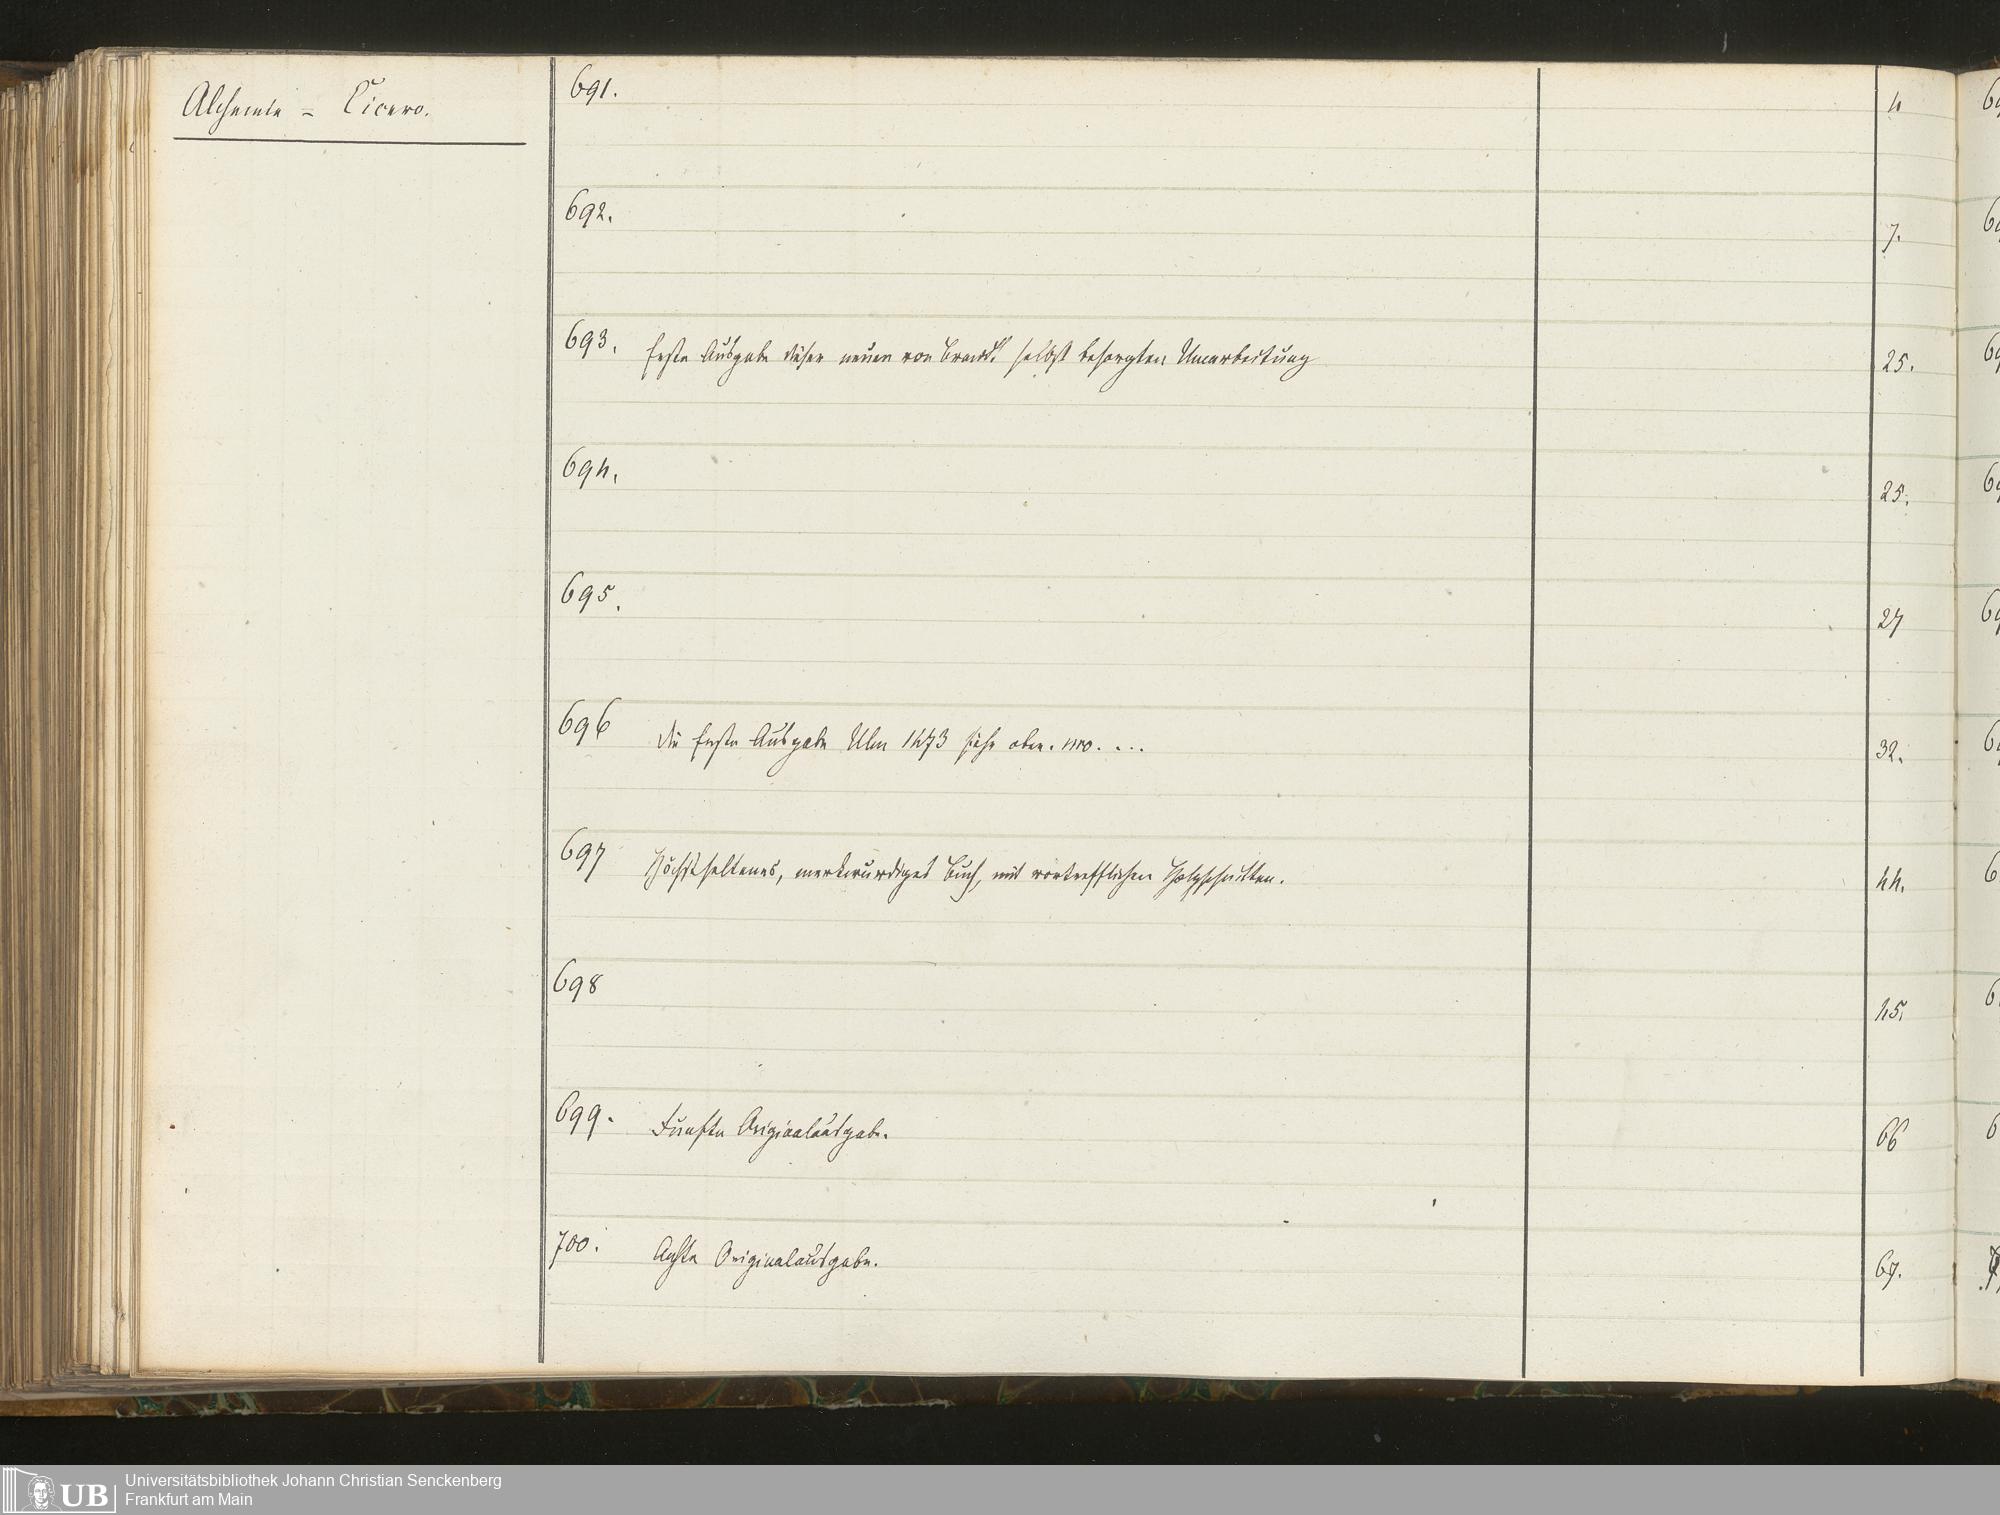 Alchemie = Cicero.
691.
4
692.
7.
693. Erste Ausgabe dieser neuen von Brandt selbst besorgten Umarbeitung
25.
694.
25.
695.
27
696 die Erste Ausgabe Ulm 1473 siehe oben. nro. ...
32.
697 Höchstseltenes, merkwurdiges Buch, mit vortrefflichen Holzschnitten.
44.
698
45.
699. Funfte Originalausgabe.
66
700. Achte Originalausgabe.
67.
UB
Universitätsbibliothek Johann Christian Senckenberg
Frankfurt am Main